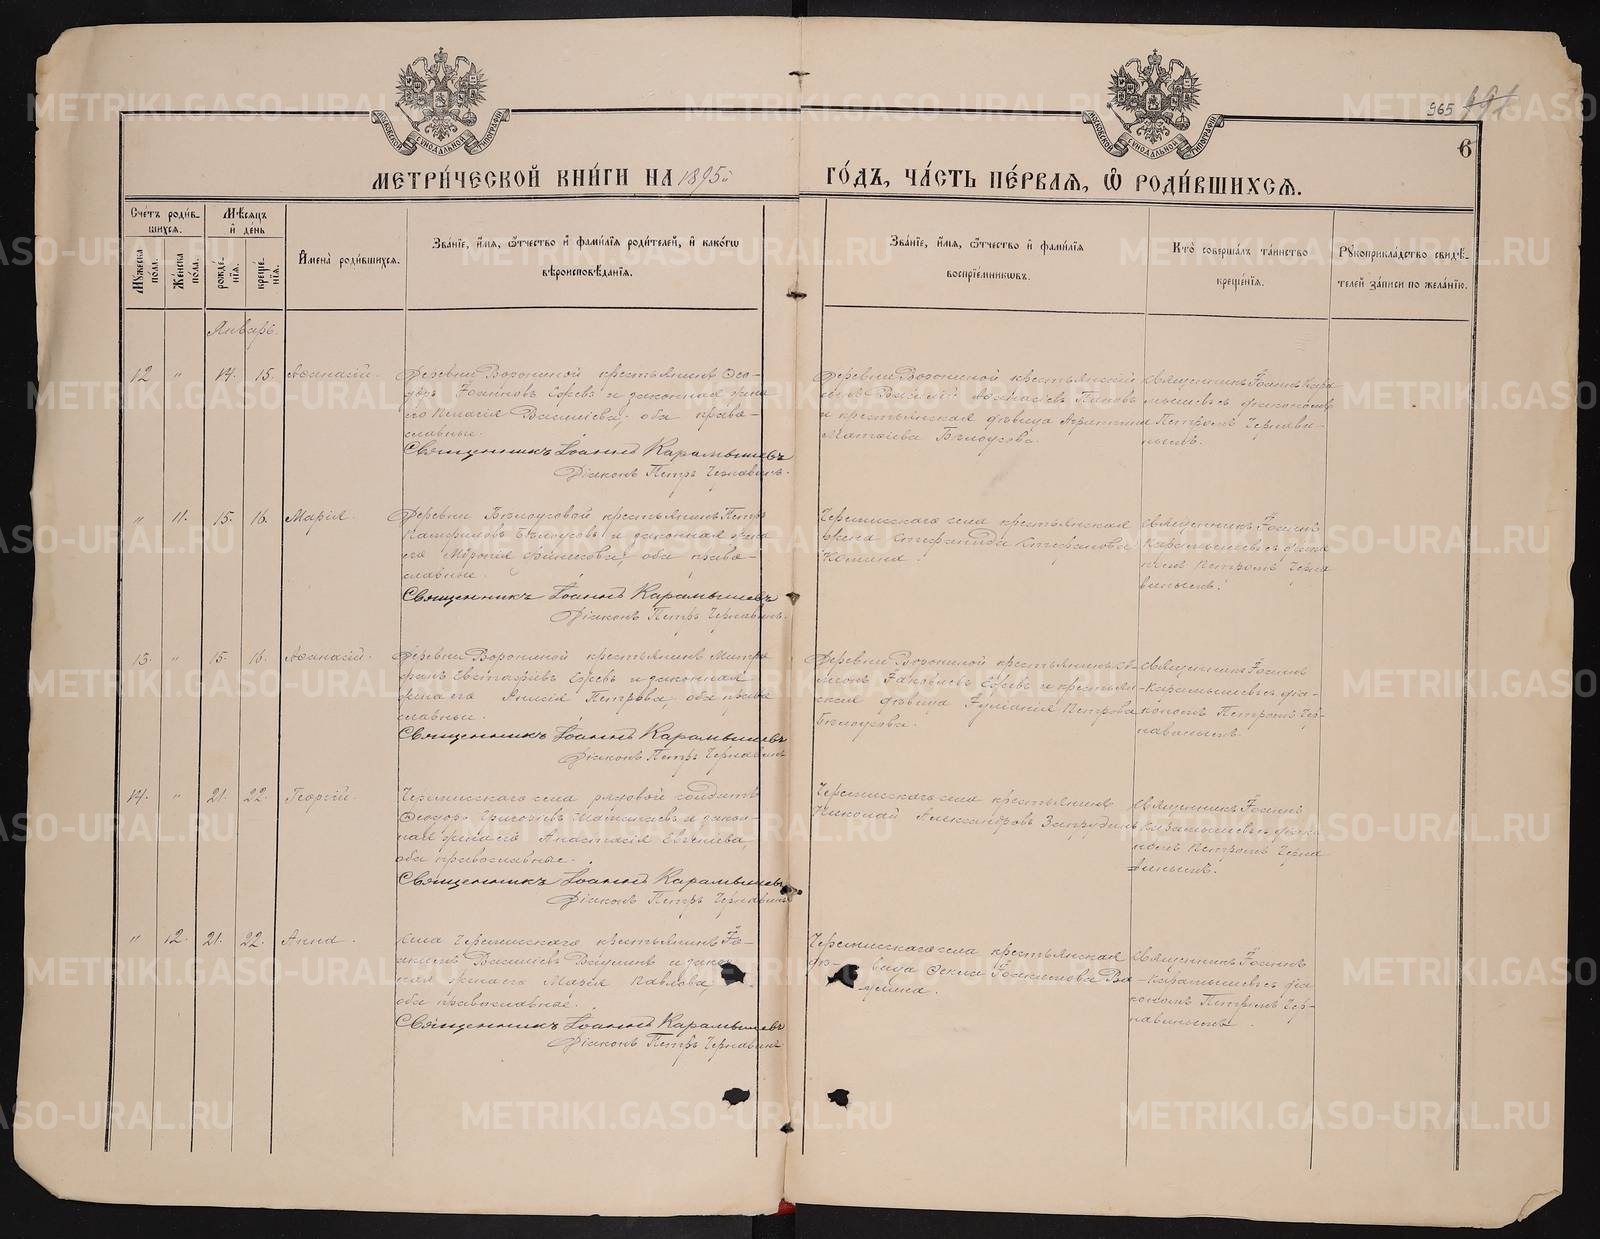 965
6
МЕТРИ́ЧЕСКОЙ КНИ́ГИ НА 1895й ГО́ДЪ, ЧА́СТЬ ПЕ́РВАЯ, Ѡ РОДИ́ВШИХСЯ.
Сче́тъ роди́вшихся.
Мѣ́сяцъ и҆ де́нь
Мꙋ́жеска по́ла.
Же́нска по́ла.
рожде́нїя.
креще́нїя.
И҆мена̀ роди́вшихся.
Зва́нїе, и҆́мя, ѻ҆́тчество и҆ фами́лїя роди́телей, и҆ како́гѡ
вѣроисповѣ́данїя.
Зва́нїе, и҆́мя, ѻ҆́тчество и҆ фами́лїя
воспрїе́мникѡвъ.
Кто̀ соверша́лъ та́инство
креще́нїя.
Рꙋкоприкла́дство свидѣ́-
телей за́писи по жела́нїю.
Январь.
12 " 14. 15. Аѳанасій.
Деревни Ворониной крестьянинъ Ѳео-
доръ Іоанновъ и законная жена
его Васильева, оба право-
славные.
Священникъ Іоаннъ Карамышевъ
Діаконъ Петръ Чернавинъ.
Деревни Ворониной крестьянскій
Василій Аѳанасіевъ Пановъ
и крестьянская дѣвица Агриппина
Матѳіева Бѣлоусова.
Священникъ Іоаннъ Кара
мышевъ съ діакономъ
Петромъ Чернави-
нымъ.
" 11. 15. 16. Марія.
Деревни Бѣлоусовой крестьянинъ Петръ
Бѣлоусовъ и законная жена
его оба право-
славные.
Священникъ Іоаннъ Карамышевъ
Діаконъ Петръ Чернавинъ.
Черемисскаго села крестьянская
жена Стефанида Стефанова
Священникъ Іоаннъ
Карамышевъ съ діако
номъ Петромъ Черна
винымъ.
13. " 15. 16. Аѳанасій.
Деревни Ворониной крестьянинъ Митро
фанъ Евстафіевъ и законная
жена его Анисія Петрова, оба право
славные.
Священникъ Іоаннъ Карамышевъ
Діаконъ Петръ Чернавинъ
Деревни Ворониной крестьянинъ
Іаковлевъ и крестьян
ская дѣвица Іуліанія Петрова
Бѣлоусова.
Священникъ Іоаннъ
Карамышевъ съ діа-
кономъ Петромъ Чер-
навинымъ.
14. " 21. 22. Георгій.
Черемисскаго села рядовой солдатъ
Ѳеодоръ Григоріевъ и закон-
ная жена его Анастасія Евгеніева
оба православные.
Священникъ Іоаннъ Карамышевъ
Діаконъ Петръ Чернавинъ
Черемисскаго села крестьянинъ
Николай Александровъ Запрудинъ
Священникъ Іоаннъ
Карамышевъ съ діако
номъ Петромъ Черна
винымъ.
" 12. 21. 22. Анна.
Села Черемисскаго крестьянинъ Іо-
акимъ Васильевъ и закон
ная жена его Марія Павлова,
оба православные.
Священникъ Іоаннъ Карамышевъ
Діаконъ Петръ Чернавинъ
Черемисскаго села крестьянская
дѣвица Іоакимова
Священникъ Іоаннъ
Карамышевъ съ діа
кономъ Петромъ Чер-
навинымъ.
METRIKI.GASO-URAL.RU